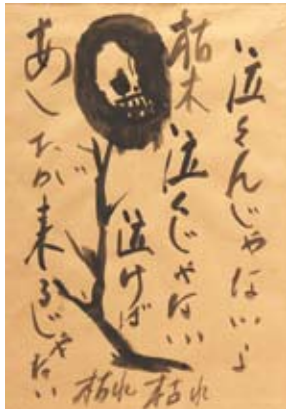 泣くんじゃないよ
枯木
泣くじゃない
泣けば
あしたが来るじゃない